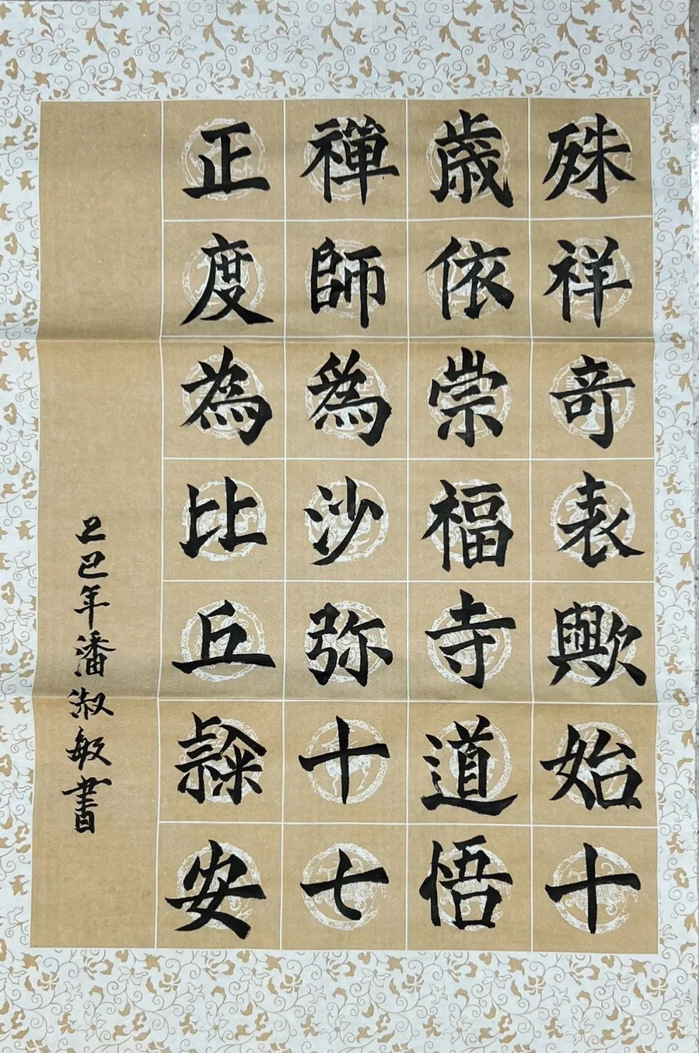 殊祥奇表歟始十
歳依崇福寺道悟
禪師為沙弥十七
正度為比丘隷安
乙巳年潘淑敏書